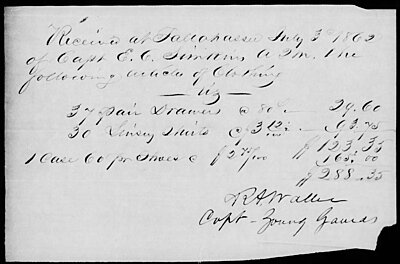 Received at Tallahassee July 3d 1862
of Capt E. C. Simkins the
following article of Clothing
viz
37 pair Drawers @ 80c 29.60
30 Linsey Shirts @ $3 12½ 93.75
$123.35
1 Case 60 pr Shoes @ $2 75/100 165.00
$288.35
R A Waller
Capt - Young Gaurds